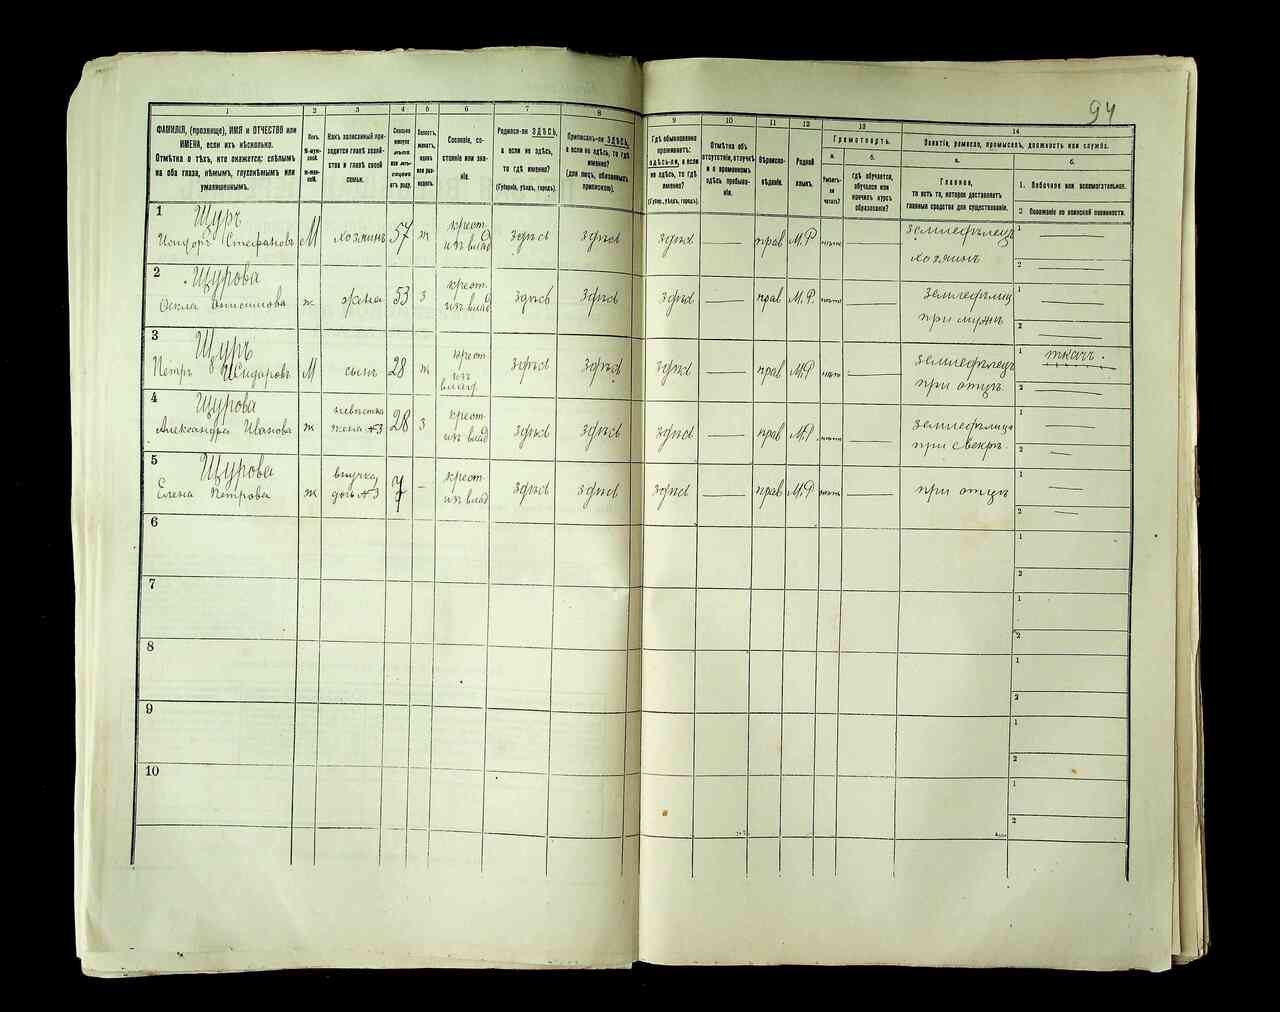 94
1
2
3
4
5
6
7
8
9
10
11
12
13
14
ФАМИЛІЯ, (прозвище), ИМЯ и ОТЧЕСТВО или
ИМЕНА, если ихъ нѣсколько.
Отмѣтка о тѣхъ, кто окажется: слѣпымъ
на оба глаза, нѣмымъ, глухонѣмымъ или
умалишеннымъ.
Полъ.
М-муж-
ской.
Ж-жен-
ский.
Какъ записанный при-
ходится главѣ хозяй-
ства и главѣ своей
семьи.
Сколько
минуло
лѣтъ
отъ роду.
Холостъ,
женатъ,
вдовъ
или раз-
веденъ.
Сословіе, со-
стояніе или зва-
ніе.
Родился-ли ЗДѢСЬ,
а если не здѣсь,
то гдѣ именно?
(Губернія, уѣздъ, городъ).
Приписанъ-ли ЗДѢСЬ,
а если не здѣсь, то гдѣ
именно?
(для лицъ, обязанныхъ
припискою).
Гдѣ обыкновенно
проживаетъ:
здѣсь-ли, а если
не здѣсь, то гдѣ
именно?
(Губерн., уѣздъ, городъ).
Отмѣтка объ
отсутствіи, отлучкѣ
и о временномъ
здѣсь пребыва-
ніи.
Вѣроиспо-
вѣданіе.
Родной
языкъ.
Грамотность.
а.
Умѣетъ-
ли
читать?
б.
гдѣ обучается,
обучался или
кончилъ курсъ
образованія?
Занятіе, ремесло, промыселъ, должность или служба.
а.
Главное,
то есть то, которое доставляетъ
главныя средства для существованія.
б.
1. Побочное или вспомогательное.
2 Положеніе по воинской повинности.
1
Щуръ
Исидоръ Стефановъ М хозяинъ 57 ж крест. изъ влад здѣсь здѣсь здѣсь прав М.Р нѣтъ земледѣлецъ
хозяинъ
1
2
2
Щурова
Фекла Онисимова ж жена 53 з крест. изъ влад здѣсь здѣсь здѣсь прав М.Р. нѣтъ земледѣлиц
при мужѣ
1
2
3
Щуръ
Петръ Исидоровъ М сынъ 28 ж крест изъ влад. здѣсь здѣсь здѣсь прав М.Р нѣтъ земледѣлецъ
при отцѣ
1 ткачъ.
2
4
Щурова
Александра Иванова ж невѣстка жена №3 28 з крест изъ влад здѣсь здѣсь здѣсь прав М.Р нѣтъ земледѣлица
при свекрѣ
1
2
5
Щурова
Елена Петрова ж внучка, дочь №3 7 крест изъ влад здѣсь здѣсь здѣсь прав М.Р нѣтъ при отцѣ
1
2
6
1
2
7
1
2
8
1
2
9
1
2
10
1
2